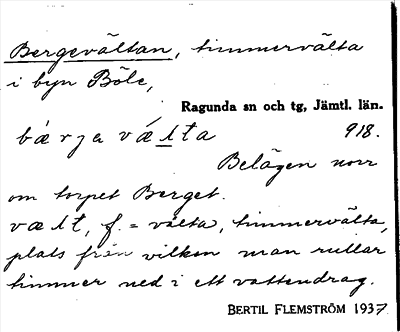 Bergevältan, timmervälta
i byn Böle,
Ragunda sn och tg, Jämtl. län.
bærja vǽlta 918.
Belägen norr
om torpet Berget.
vælt, f. = välta, timmervälta,
plats från vilken man rullar
timmer ned i ett vattendrag.
BERTIL FLEMSTRÖM 1937